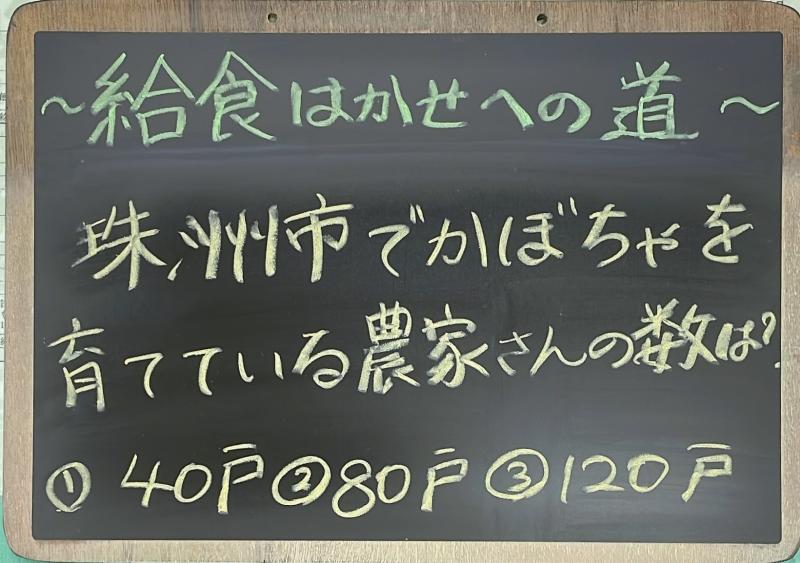 ～給食はかせへの道～
珠洲市でかぼちゃを
育てている農家さんの数は?
① 40戸 ② 80戸 ③ 120戸